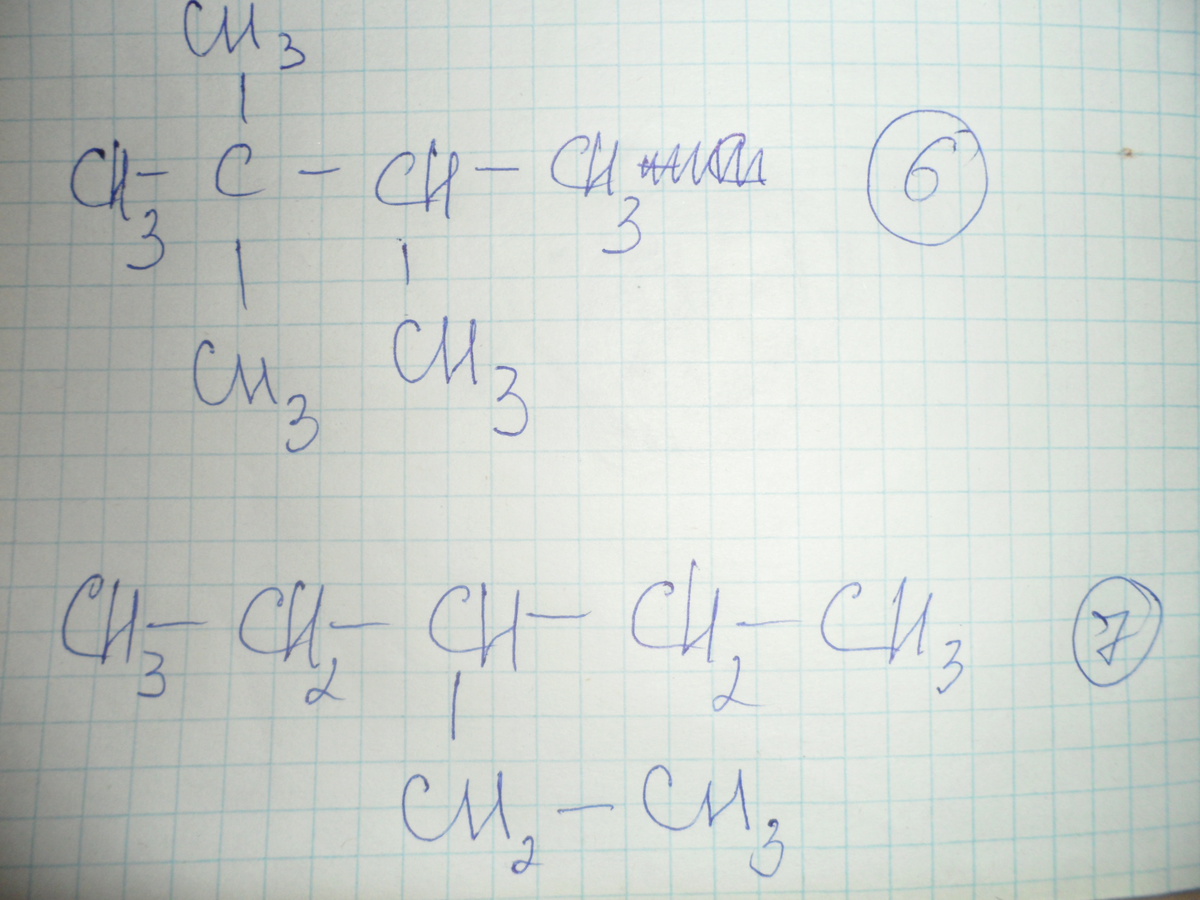 CH3
CH3 - C - CH - CH3 6
CH3 CH3
CH3 - CH2 - CH - CH2 - CH3 7
CH2 - CH3